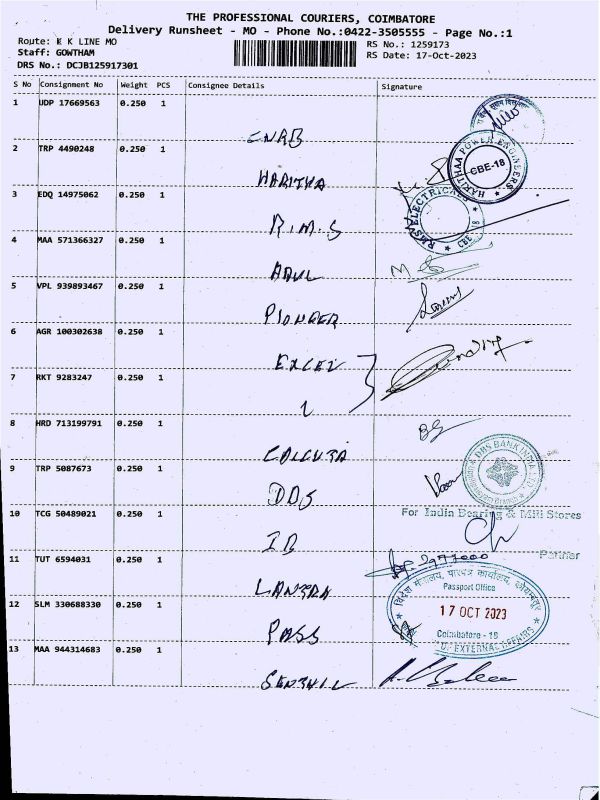 THE PROFESSIONAL COURIERS, COIMBATORE
Delivery Runsheet - MO - Phone No.:0422-3505555 - Page No.:1
Route: K K LINE MO
Staff: GOWTHAM
DRS No.: DCJB125917301
RS No.: 1259173
RS Date: 17-Oct-2023
S No Consignment No Weight PCS Consignee Details Signature
1 UDP 17669563 0.250 1
2 TRP 4490248 0.250 1 HARITHA
HARITHAA POWER ENGINEERS
CBE-18
3 EDQ 14975062 0.250 1 R.M.S
RMS ELECTRIC
4 MAA 571366327 0.250 1
5 VPL 939893467 0.250 1 PIONEER
6 AGR 100302638 0.250 1 EXCEL
7 RKT 9283247 0.250 1
8 HRD 713199791 0.250 1 CALCUTA
9 TRP 5087673 0.250 1 DBS
DBS BANK INDIA LTD
10 TCG 50489021 0.250 1 IB
For Indin Bearing & Mill Stores
Partner
11 TUT 6594031 0.250 1
12 SLM 330688330 0.250 1 PASS
विदेश मंत्रालय, पारपत्र कार्यालय, कोयम्बतूर
Passport Office
17 OCT 2023
Coimbatore - 18
OF EXTERNAL AFFAIRS
13 MAA 944314683 0.250 1 SENTHIL